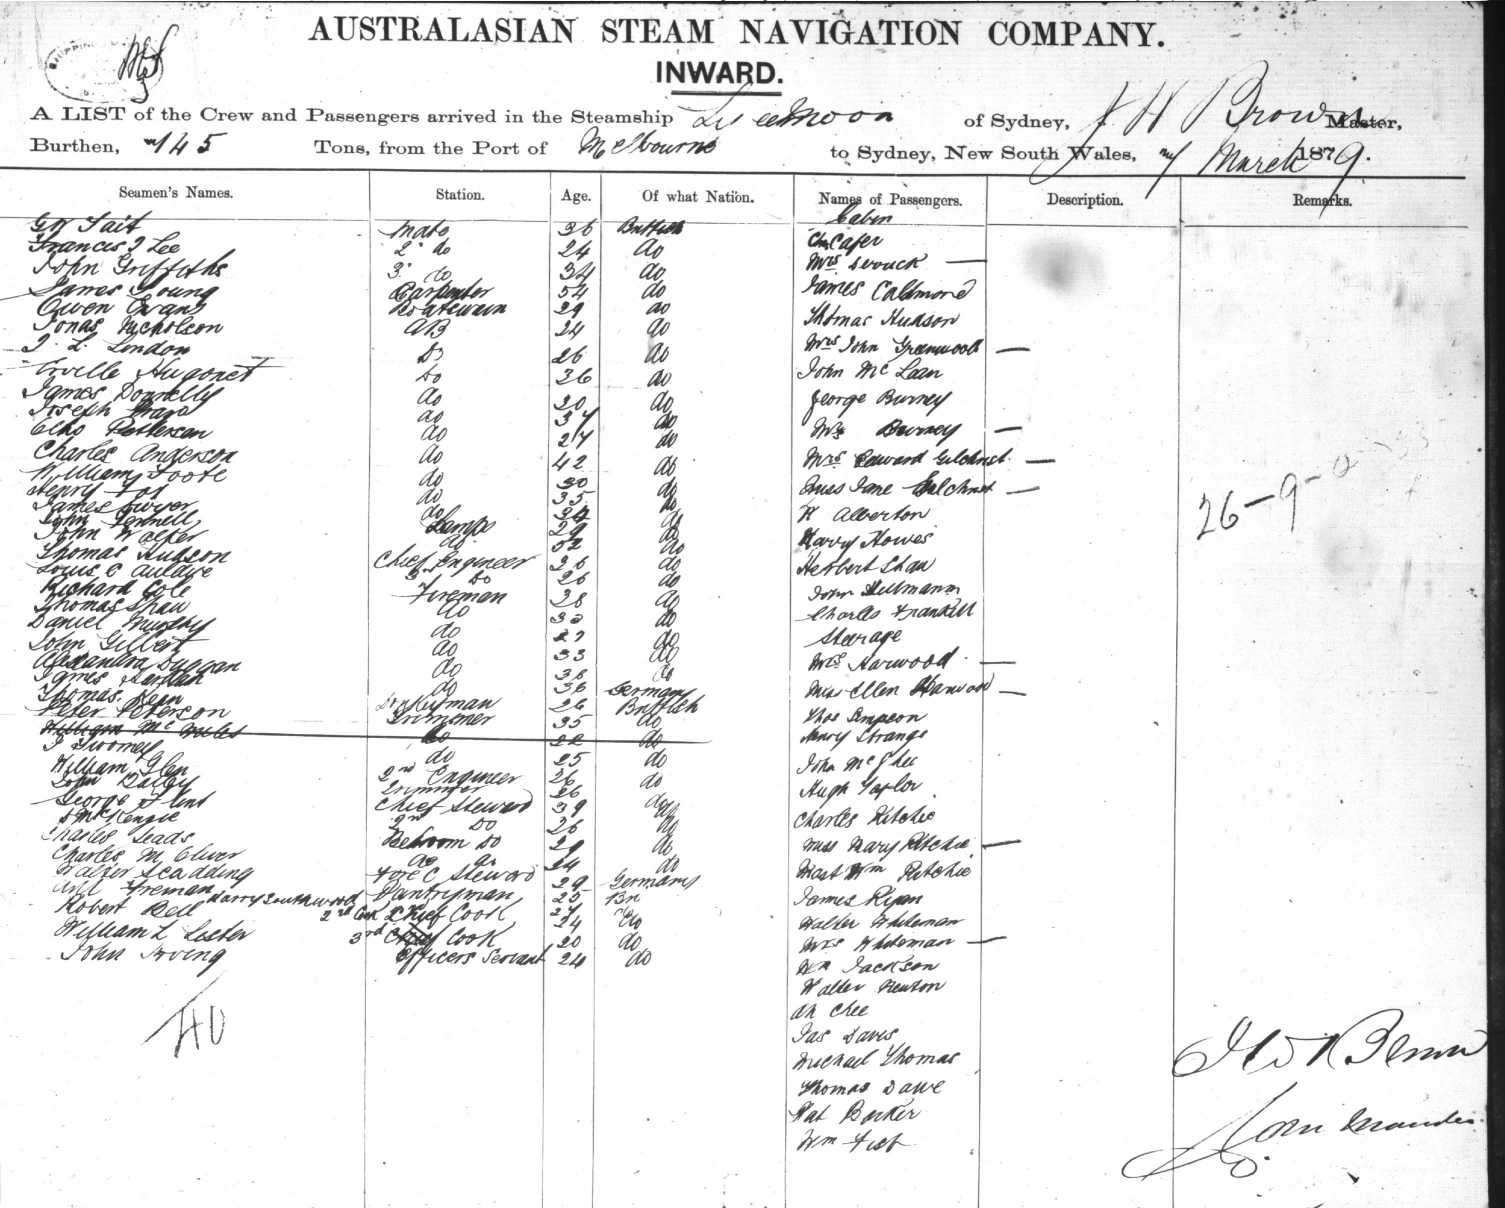 AUSTRALASIAN STEAM NAVIGATION COMPANY.
INWARD.
A LIST of the Crew and Passengers arrived in the Steamship of Sydney, J H Brown Master,
Burthen, 145 Tons, from the Port of Melbourne to Sydney, New South Wales, March 1879.
Seamen's Names. Station. Age. Of what Nation. Names of Passengers. Description. Remarks.
Tait Mate 36 British
Francis J Lee 2d do 24 do
John Griffiths 3d do 34 do
James Young Carpenter 54 do
Owen Evans Boatswain 29 do
Jonas Nicholson AB 24 do
J L London Do 26 do
Orville Hugonet Do 36 do
James Donnelly do 20 do
Joseph do 37 do
Petterson do 27 do
Charles Anderson do 42 do
William Foote do 30 do
Henry Fox do 35 do
James Dwyer do 34 do
John Fennell Lamps 29 do
John Walter do 52 do
Thomas Hudson Chief Engineer 36 do
Louis C 3rd Do 26 do
Richard Cole Fireman 28 do
Thomas Shaw do 30 do
Daniel Murphy do 27 do
John Gilbert do 33 do
Duggan do 38 do
James do 36 German
Thomas Kean 26 British
Peter Peterson Trimmer 35 do
William Mc do 22 do
J Twomey do 25 do
William Glen 2nd Engineer 26 do
John Bailey Trimmer 26 do
George Flint Chief Steward 39 do
McKenzie 2nd Do 26 do
Charles Leads Bedroom Do 29 do
Charles M Oliver do do 24 do
Walter Scadding Fore C Steward 29 Germany
Freman Pantryman 25 Br
Harry Southwood 2nd Cook
Robert Bell Chief Cook 24 do
William L Lester 3rd Cook 20 do
John Irving Officers Servant 24 do
40
Cabin
Cafer
Mrs —
James
Thomas Hudson
Mrs John Greenwood —
John McLean
George Burney
Mrs Burney —
Mrs Edward Gilchrist —
Miss Jane Gilchrist —
H Alberton
Harry Howes
Herbert Shaw
John Hellmann
Charles
Steerage
Mrs Harwood —
Miss Ellen Harwood —
Thos Simpson
Henry Strange
John McGhee
Hugh Taylor
Charles Ritchie
Miss Mary Ritchie —
Mast Wm Ritchie
James Ryan
Walter Whiteman
Mrs Whiteman —
Wm Jackson
Walter Newton
Ah Chee
Jas Davis
Michael Thomas
Thomas Dawe
Barker
Wm
26-9-0